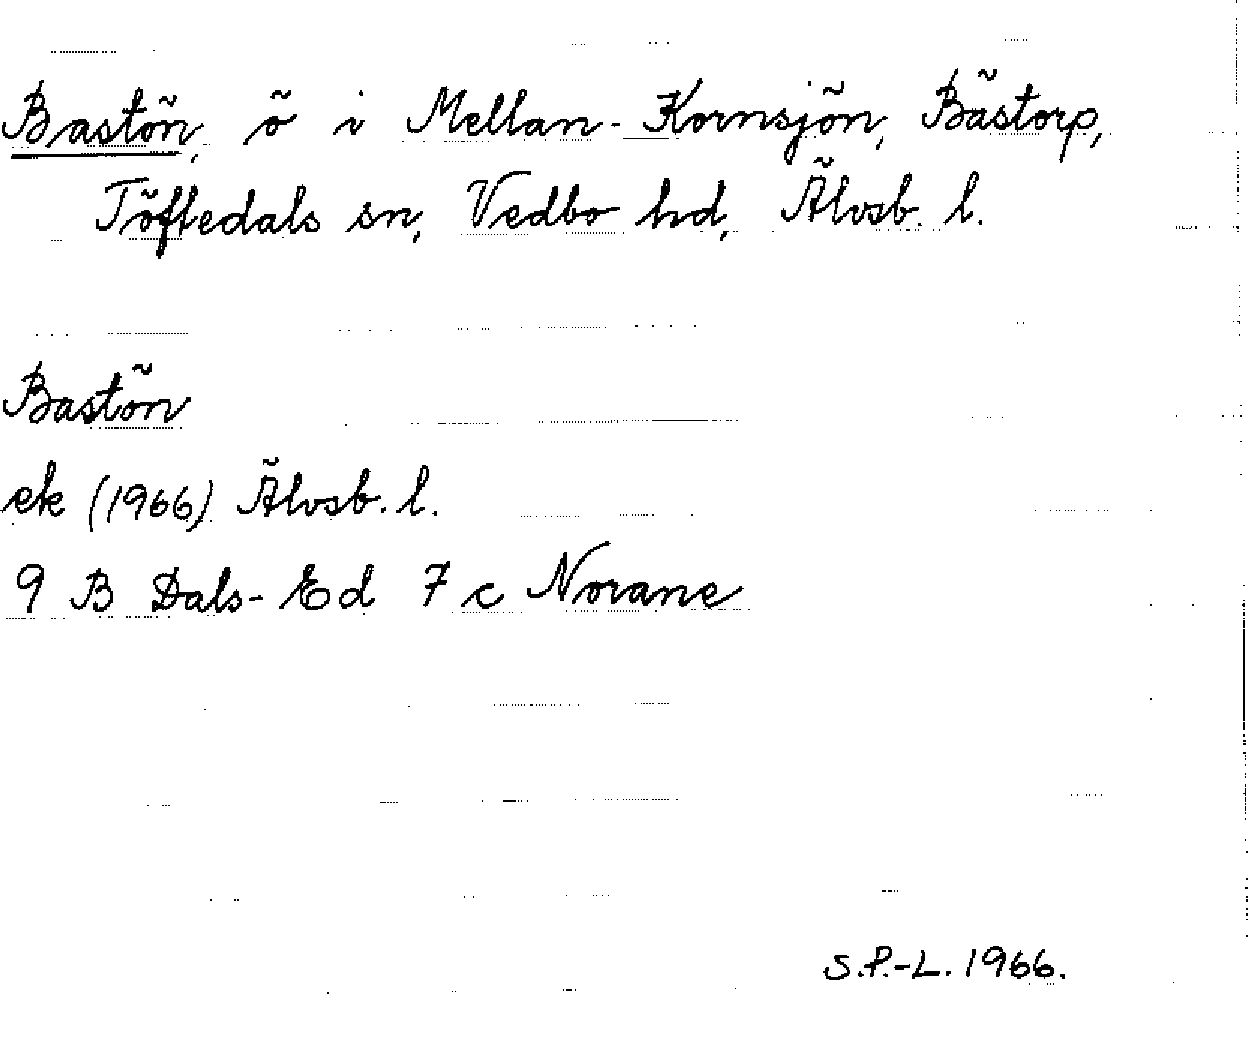 Bastön, ö i Mellan-Kornsjön, Bästorp,
Töftedals sn, Vedbo hd, Älvsb. l.
Bastön
ek (1966) Älvsb. l.
9 B Dals-Ed 7 c Norane
S.P.-L. 1966.